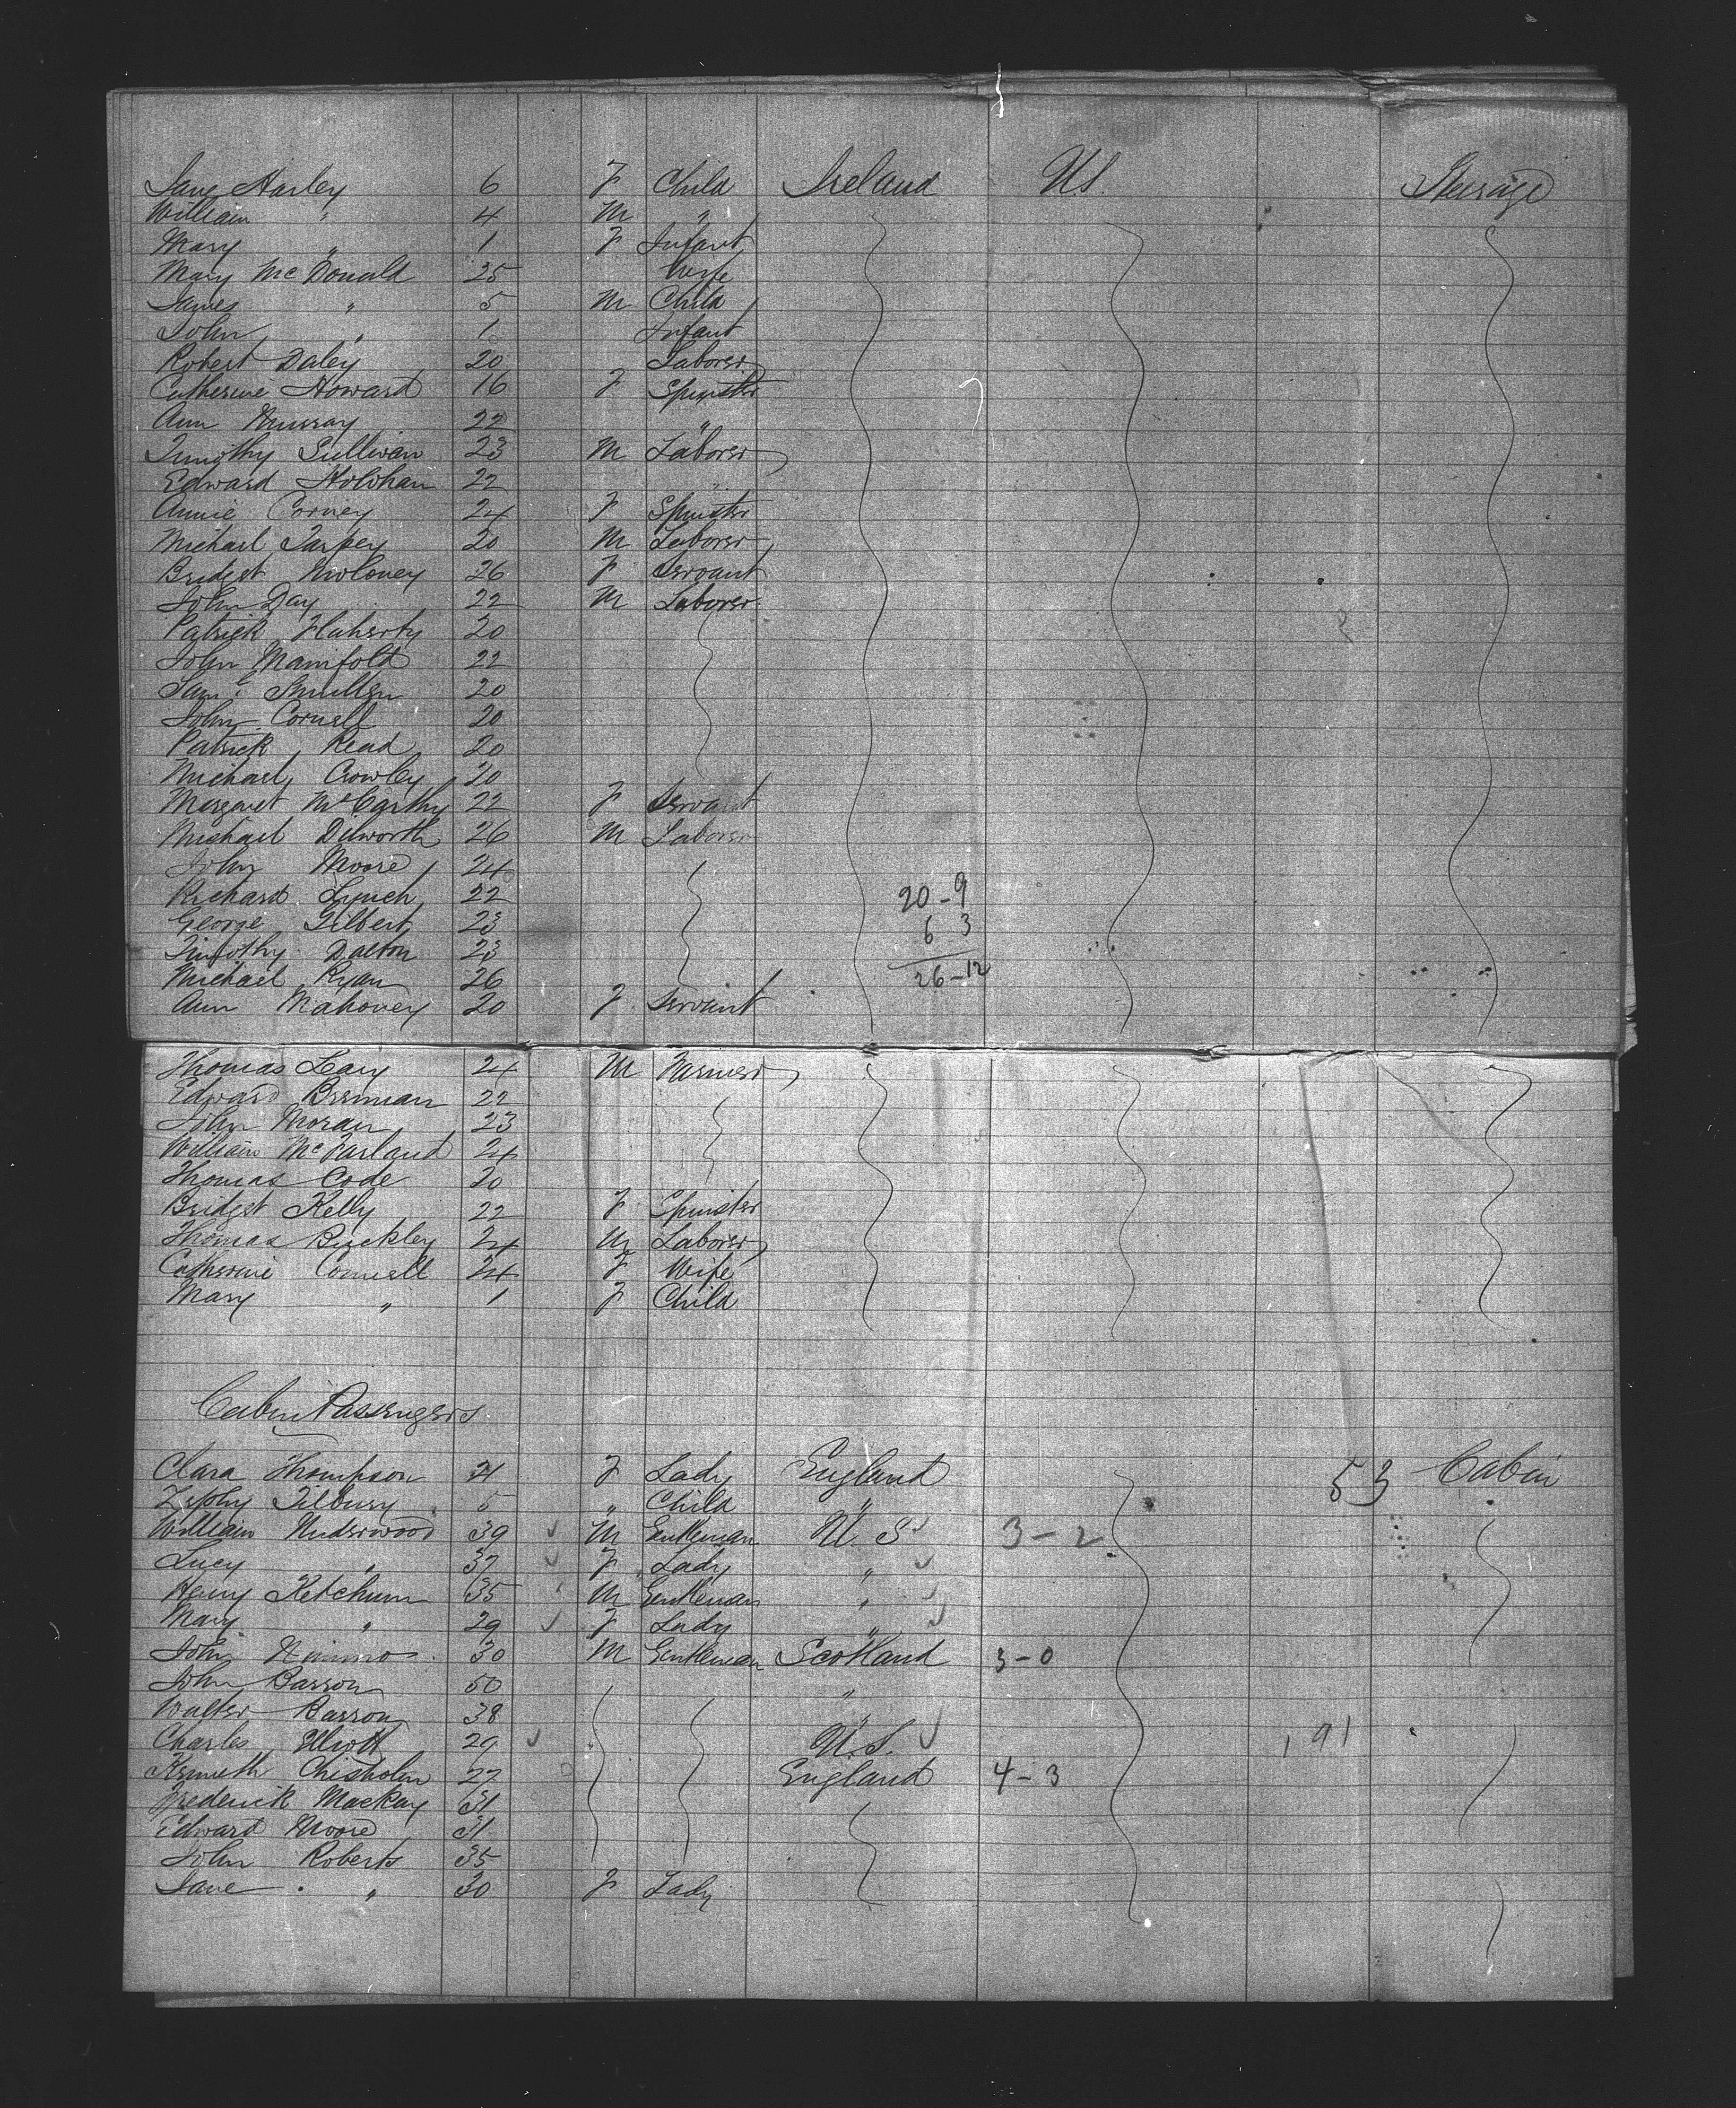 Jane Harley 6 F Child Ireland U.S. Steerage
William " 4 M "
Mary " 1 F Infant
Mary McDonald 25 Wife
James " 5 M Child
John " 1 Infant
Robert Daley 20 Laborer
Catherine Howard 16 F Spinster
Ann Murray 22 "
Timothy Sullivan 23 M Laborer
Edward Holohan 22 "
Annie Corney 24 F Spinster
Michael Tarpey 20 M Laborer
Bridget Moloney 26 F Servant
John Day 22 M Laborer
Patrick Flaherty 20
John Manifold 22
Saml Smullen 20
John Cornell 20
Patrick Read 20
Michael Crowley 20
Margaret McCarthy 22 F Servant
Michael Dilworth 26 M Laborer
John Moore 24
Richard Lynch 22 20-9
George Gilbert 23 6 3
Timothy Dalton 23
Michael Ryan 26 26-12
Ann Mahoney 20 F Servant
Thomas Leary 24 M Farmer
Edward Brennan 22
John Moran 23
William McFarland 24
Thomas Code 20
Bridget Kelly 22 F Spinster
Thomas Buckley 24 M Laborer
Catherine Connell 24 F Wife
Mary " 1 F Child
Cabin Passengers
Clara Thompson 21 F Lady England 53 Cabin
Zephy Tilbury 5 " Child "
William Underwood 39 M Gentleman U.S 3-2
Lucy " 37 F Lady "
Henry Ketchum 35 M Gentleman "
Mary " 29 F Lady "
John Nimmo 30 M Gentleman Scotland 3-0
John Barron 50 "
Walter Barron 38 "
Charles Elliott 29 U.S. 191
Kenneth Chisholm 27 England 4-3
Frederick Mackay 31
Edward Moore 31
John Roberts 35
Jane " 30 F Lady